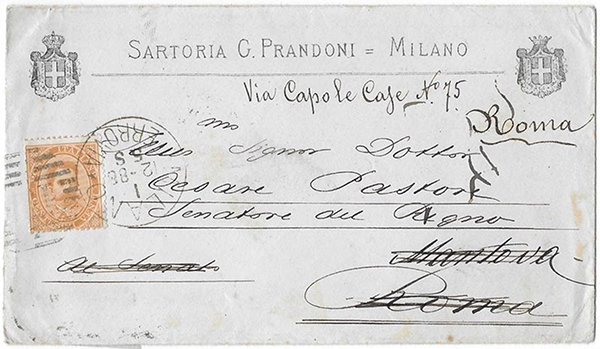 SARTORIA G. PRANDONI = MILANO
Via Capo le Case No. 75
Roma
mo
Signor Dottor
Cesare Pastor
Senatore del Regno
Mantova
al Senato
Roma